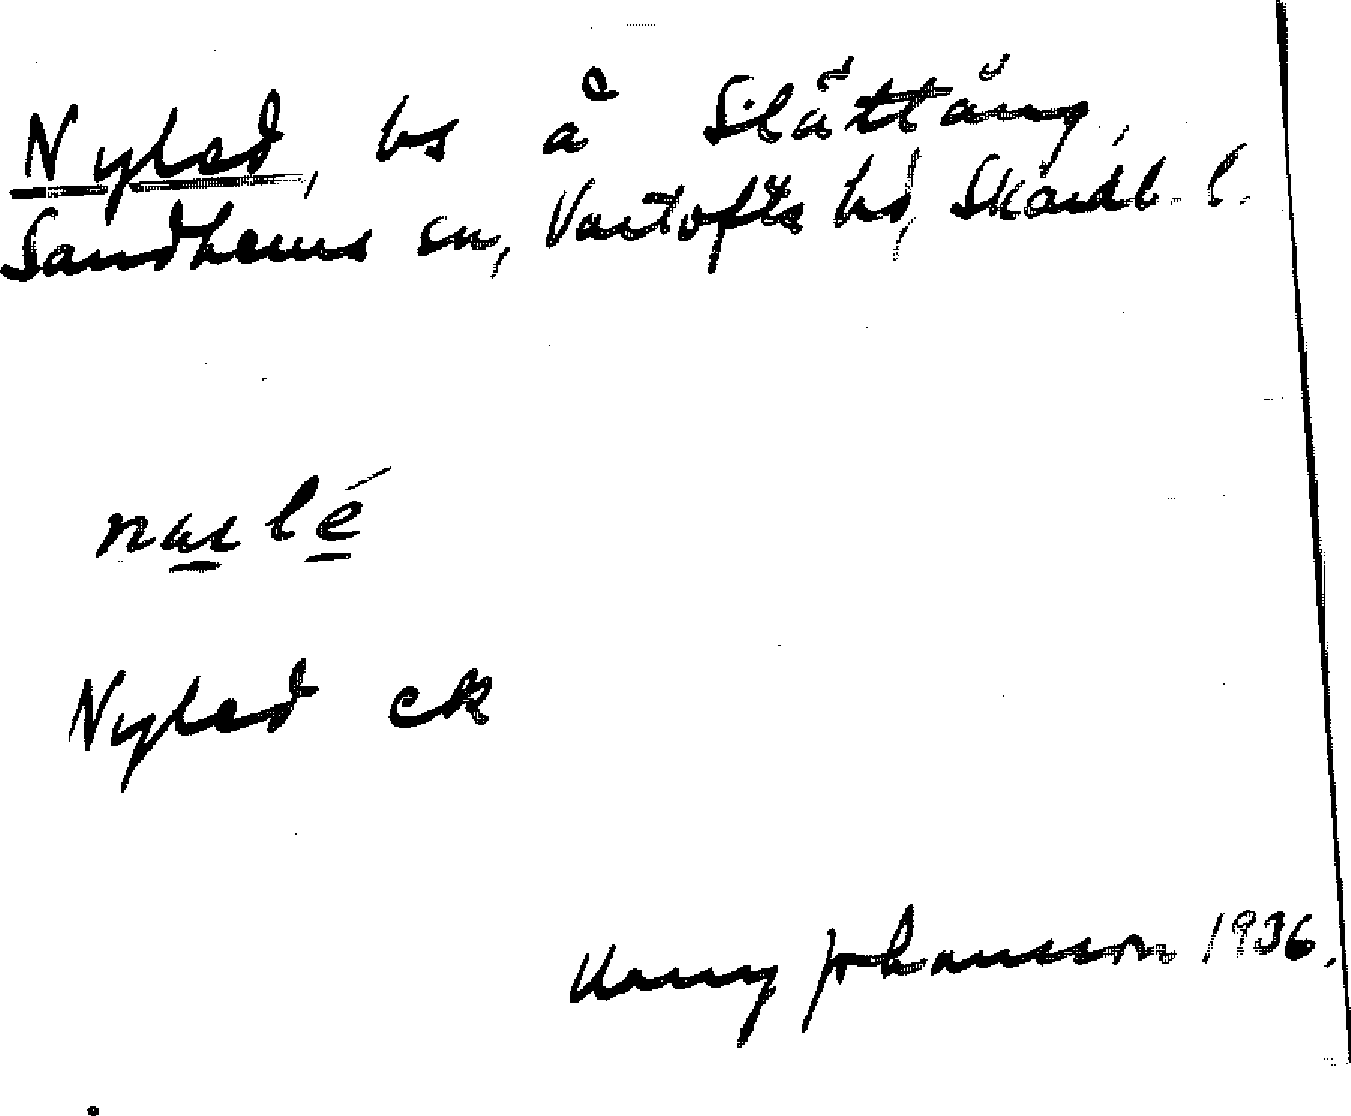 Nyled, bs å Slättäng,
Sandhems sn, Vartofts hd, Skarab. l.
Nyled ek
Harry Johansson 1936.